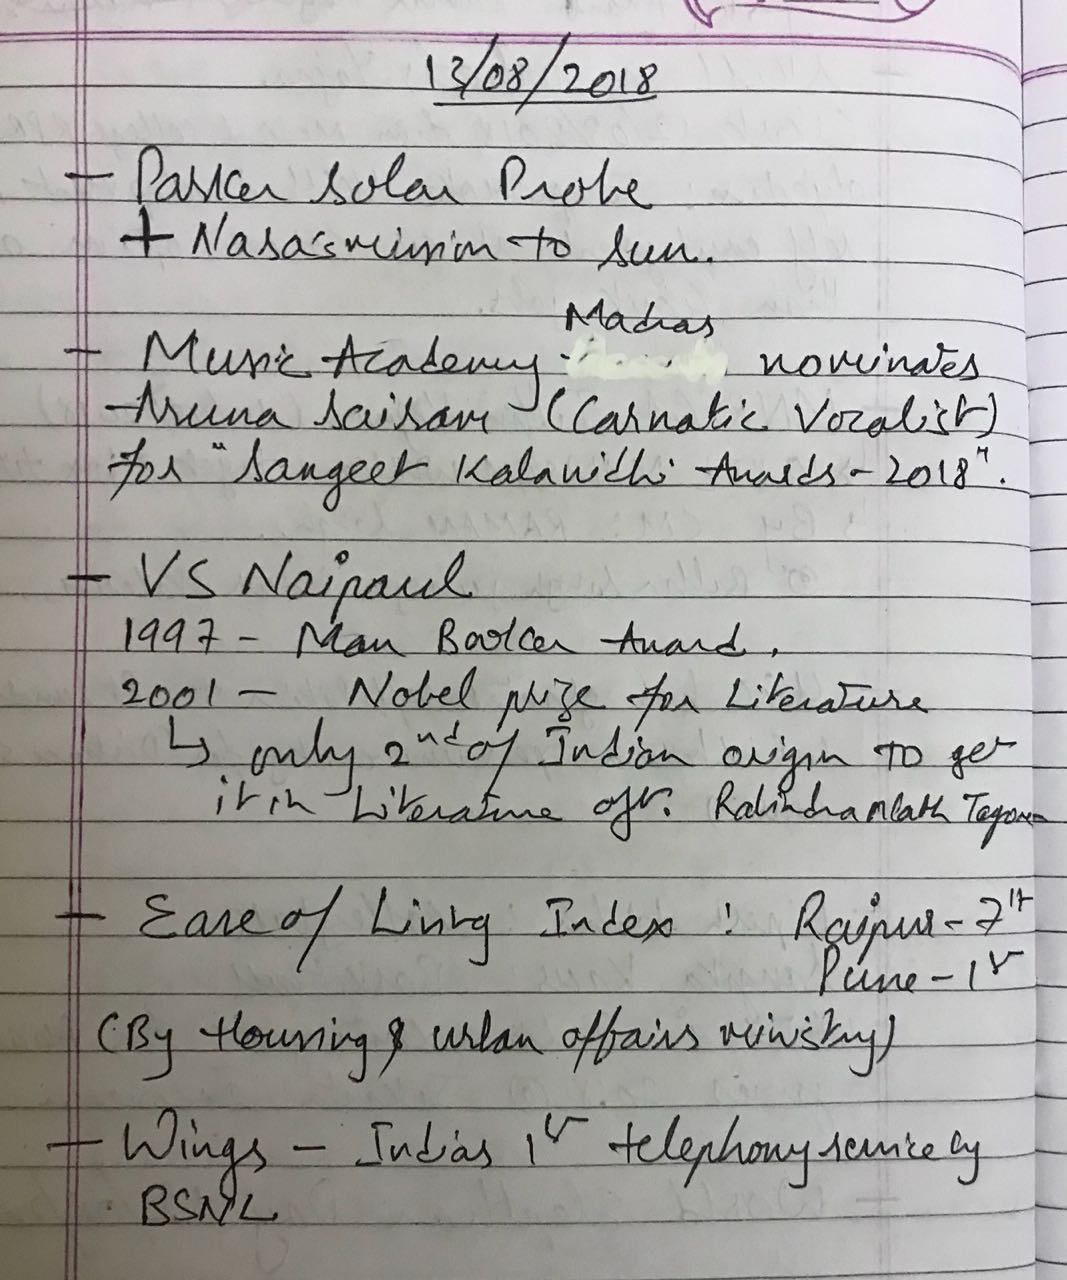 13/08/2018
- Parker Solar Probe
+ Nasa's mission to sun.
Madras
- Music Academy nominates
Aruna Sairam (Carnatic Vocalist)
for "Sangeet Kalanidhi Awards - 2018".
- VS Naipaul
1997 - Man Booker Award.
2001 - Nobel prize for Literature
↳ only 2nd of Indian origin to get
it in Literature aft. Rabindranath Tagore
- Ease of Living Index : Raipur - 7th
Pune - 1st
(By Housing & urban affairs ministry)
- Wings - India's 1st telephony service by
BSNL